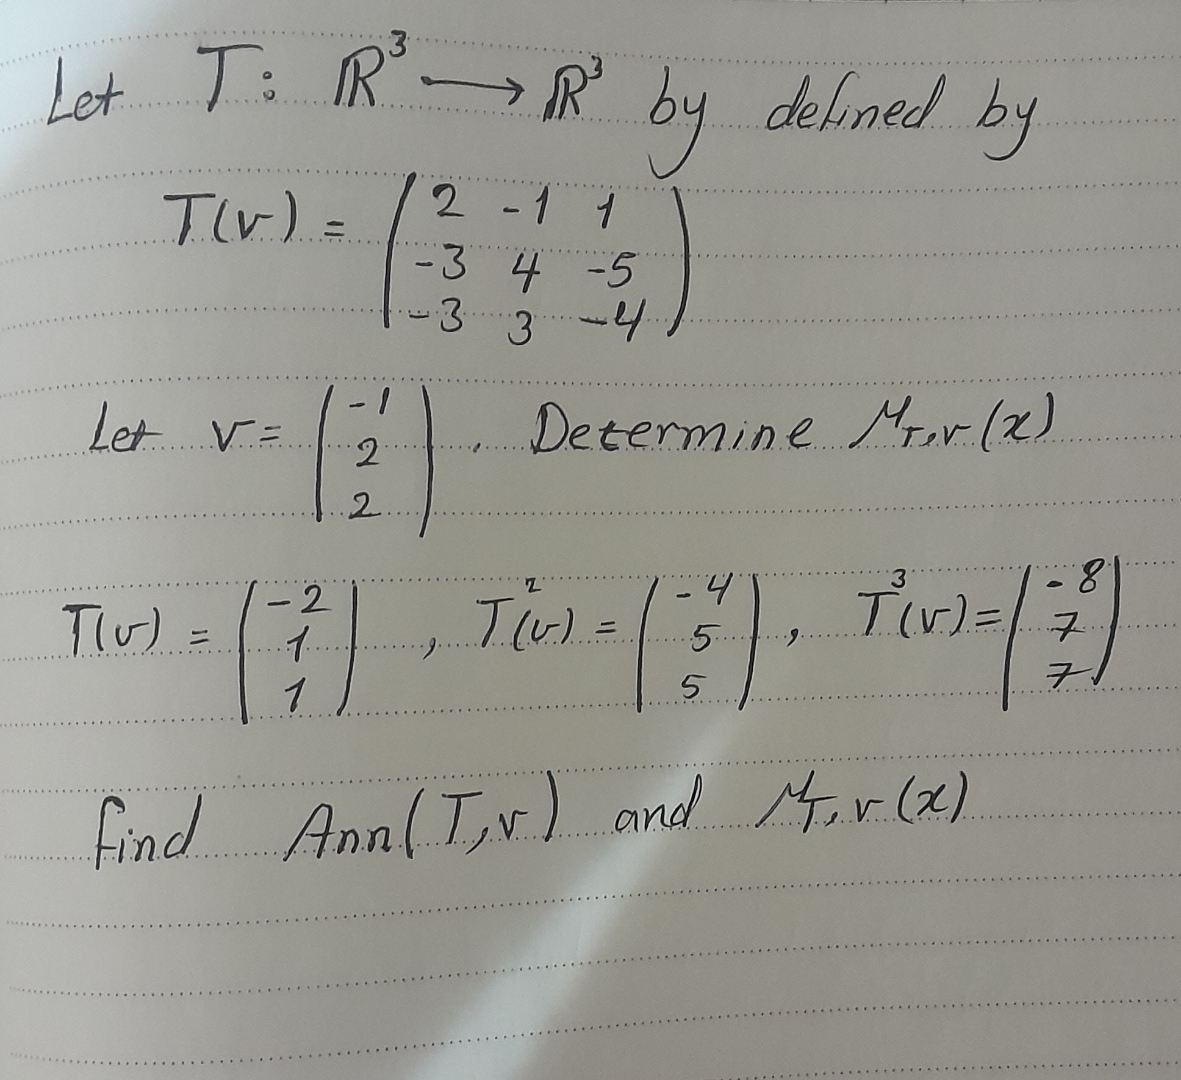 Let T: ℝ³ → ℝ³ by defined by
T(v) = ( 2 -1 1
-3 4 -5
-3 3 -4 )
Let v = ( -1
2
2 ) . Determine μ_T,v(x)
T(v) = ( -2
1
1 ) , T²(v) = ( -4
5
5 ) , T³(v) = ( -8
7
7 )
find Ann(T,v) and μ_T,v(x)